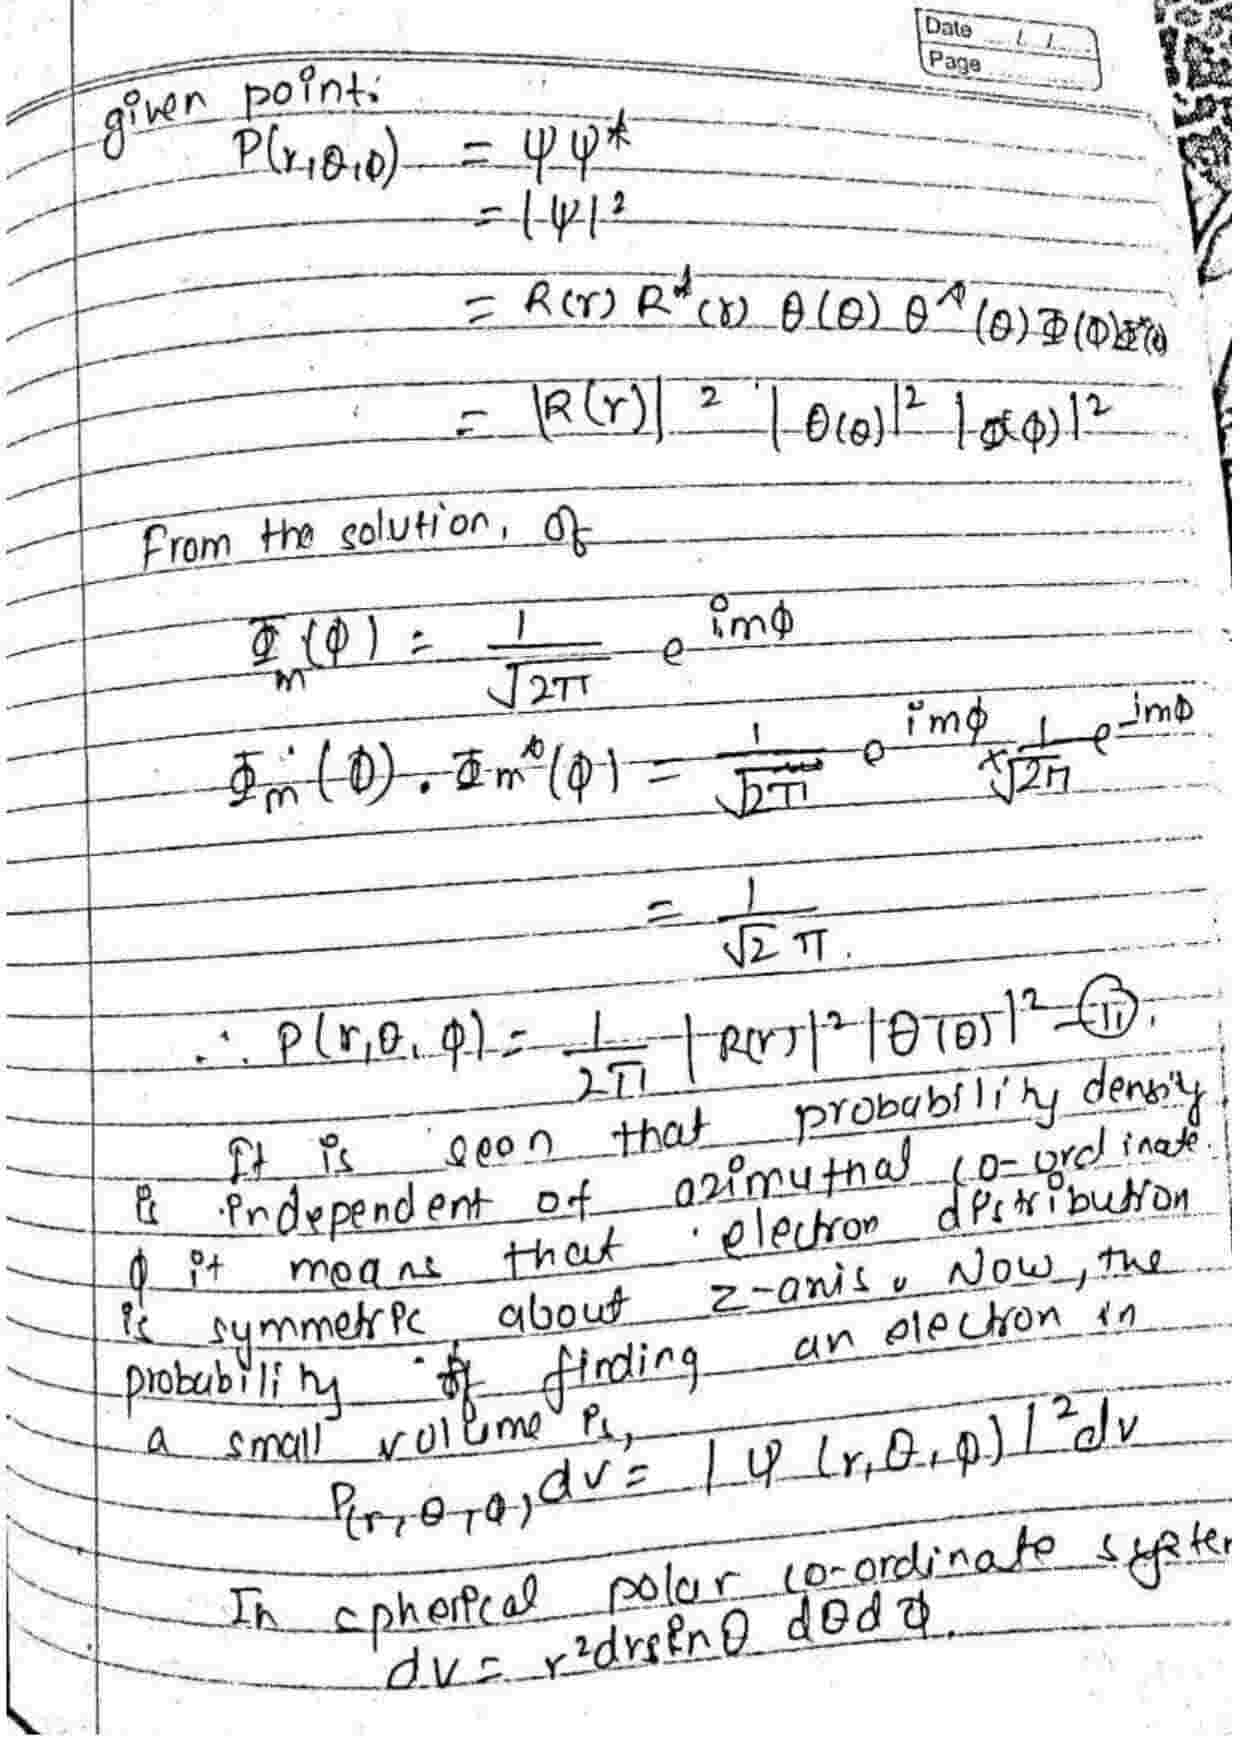 Date / /
Page
given point:
P(r,θ,Φ) = ψψ*
= |ψ|²
= R(r) R*(r) θ(θ) θ*(θ) Φ(Φ) Φ*(Φ)
= |R(r)|² |θ(θ)|² |Φ(Φ)|²
From the solution, of
Φm(Φ) = 1/√2π e^imΦ
Φm(Φ) . Φm*(Φ) = 1/√2π e^imΦ × 1/√2π e^-imΦ
= 1/√2 π.
∴ P(r,θ,Φ) = 1/2π |R(r)|² |θ(θ)|² - (ii).
It is seen that probability density
is independent of azimuthal co-ordinate.
Φ it means that electron distribution
is symmetric about z-axis. Now, the
probability of finding an electron in
a small volume is,
P(r,θ,Φ) dv = |ψ (r,θ,Φ)|² dv
In spherical polar co-ordinate system
dv = r²dr sinθ dθ dΦ.